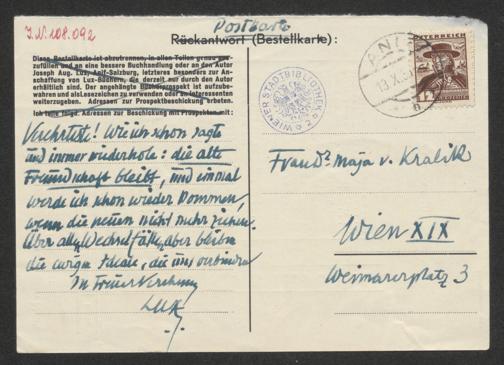 I.N. 108.092
Postkarte
Rückantwort (Bestellkarte):
Diese Bestellkarte ist abzutrennen, in allen Teilen genau aus-
zufüllen und an eine bessere Buchhandlung oder an den Autor
Joseph Aug. Lux, Anif-Salzburg, letzteres besonders zur An-
schaffung von Lux-Büchern, die derzeit nur durch den Autor
erhältlich sind. Der angehängte Bücherprospekt ist aufzube-
wahren und als Lesezeichen zu verwenden oder an Interessenten
weiterzugeben. Adressen zur Prospektbeschickung erbeten.
Ich teile folgd. Adressen zur Beschickung mit Prospekten mit:
Verehrteste! Wie ich schon sagte
und immer wiederhole: die alte
Freundschaft bleibt, und einmal
werde ich schon wieder kommen,
wenn die neuen nicht mehr ziehen.
Über alle Wechselfälle aber bleiben
die ewigen Ideale, die uns verbinden
In treuer Verehrung
Lux
WIENER STADTBIBLIOTHEK
ANIF
ÖSTERREICH
12
GROSCHEN
Frau Maja v. Kralik
Wien XIX
Weimarerplatz 3